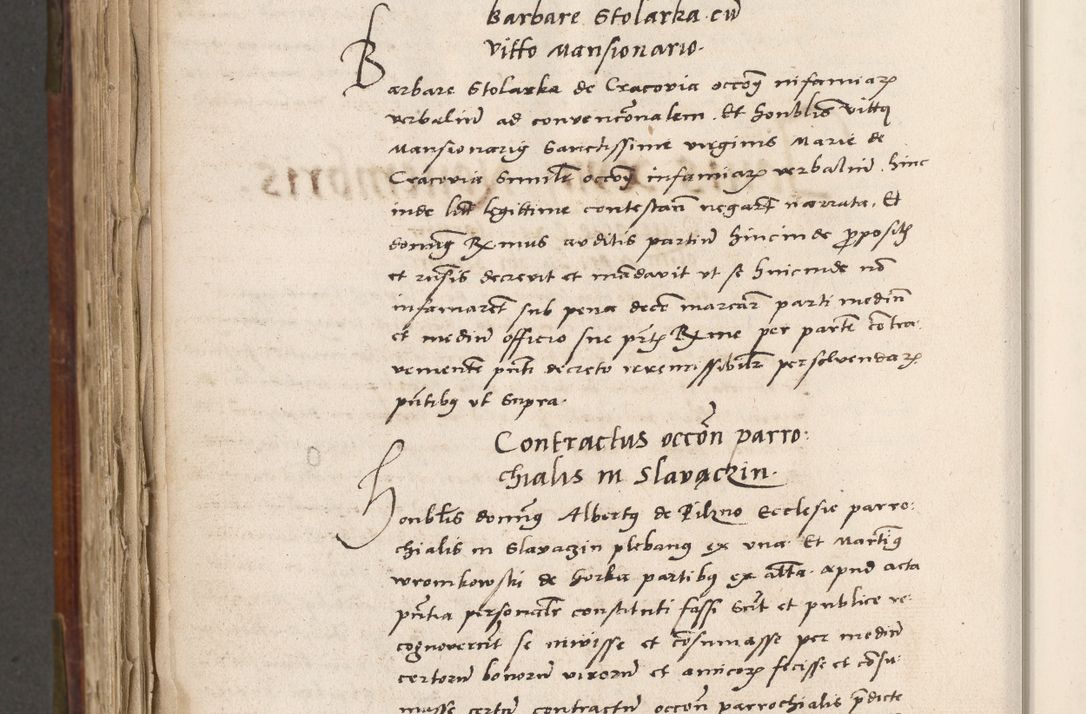 Barbare Stolarka cū
vitto Mansionario.
Barbare Stolarka de Cracovia occoē infamiarꝝ
verbaliū ad convencōnalem. Et honblis vittꝯ
Mansionariꝯ Sanctissime virginis Marie de
Cracovia Similr occoē infamiarꝝ verbaliū. hinc
inde legittime contestan̄ negar̄t narrata. Et
domīnꝯ Rx̄mus auditis partiū hincinde ꝓpositis
et rn̄sis decrevit et mādavit ut se hincinde nō
infamarēt sub pena decē marcarꝝ parti mediā
et mediā officio sue Rx̄me per partē cōtra
venientē pn̄ti decreto irremissibilr persolvendarꝝ
pn̄tibꝯ ut Supra.
Contractus occōn parro:
chialis in Slavaczin.
Honblis domīnꝯ Albertꝯ de Pilzno Ecclesie parro:
chialis in Slavaczin plebanꝯ ex una. Et Martinꝯ
Wromkowski de horka partibꝯ ex alta. apud acta
pn̄tia personalr constituti fassi sūt et publice re:
cognoverūt se inivisse et cōsumasse per mediū
certorū bonorū virorū et amicorꝝ fecisse et cōsu:
masse certū contractū occōn parrochialis p̄dicte